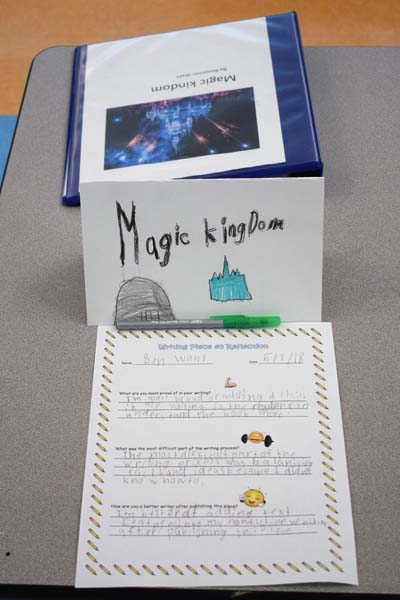 Magic kindom
By Benjamin
Magic kingDom
Writing Piece #3 Reflection
Name Ben Date 6/1/18
What are you most proud of in your writing?
I'm most proud of adding
in my writing so the reader can
understand the book more.
What was the most difficult part of the writing process?
The most difficult part of the
writing process was balancing
facts and ideas because I didn't
know how to.
How are you a better writer after publishing this piece?
I'm better at adding text
features into my nonfiction writing
after publishing this piece